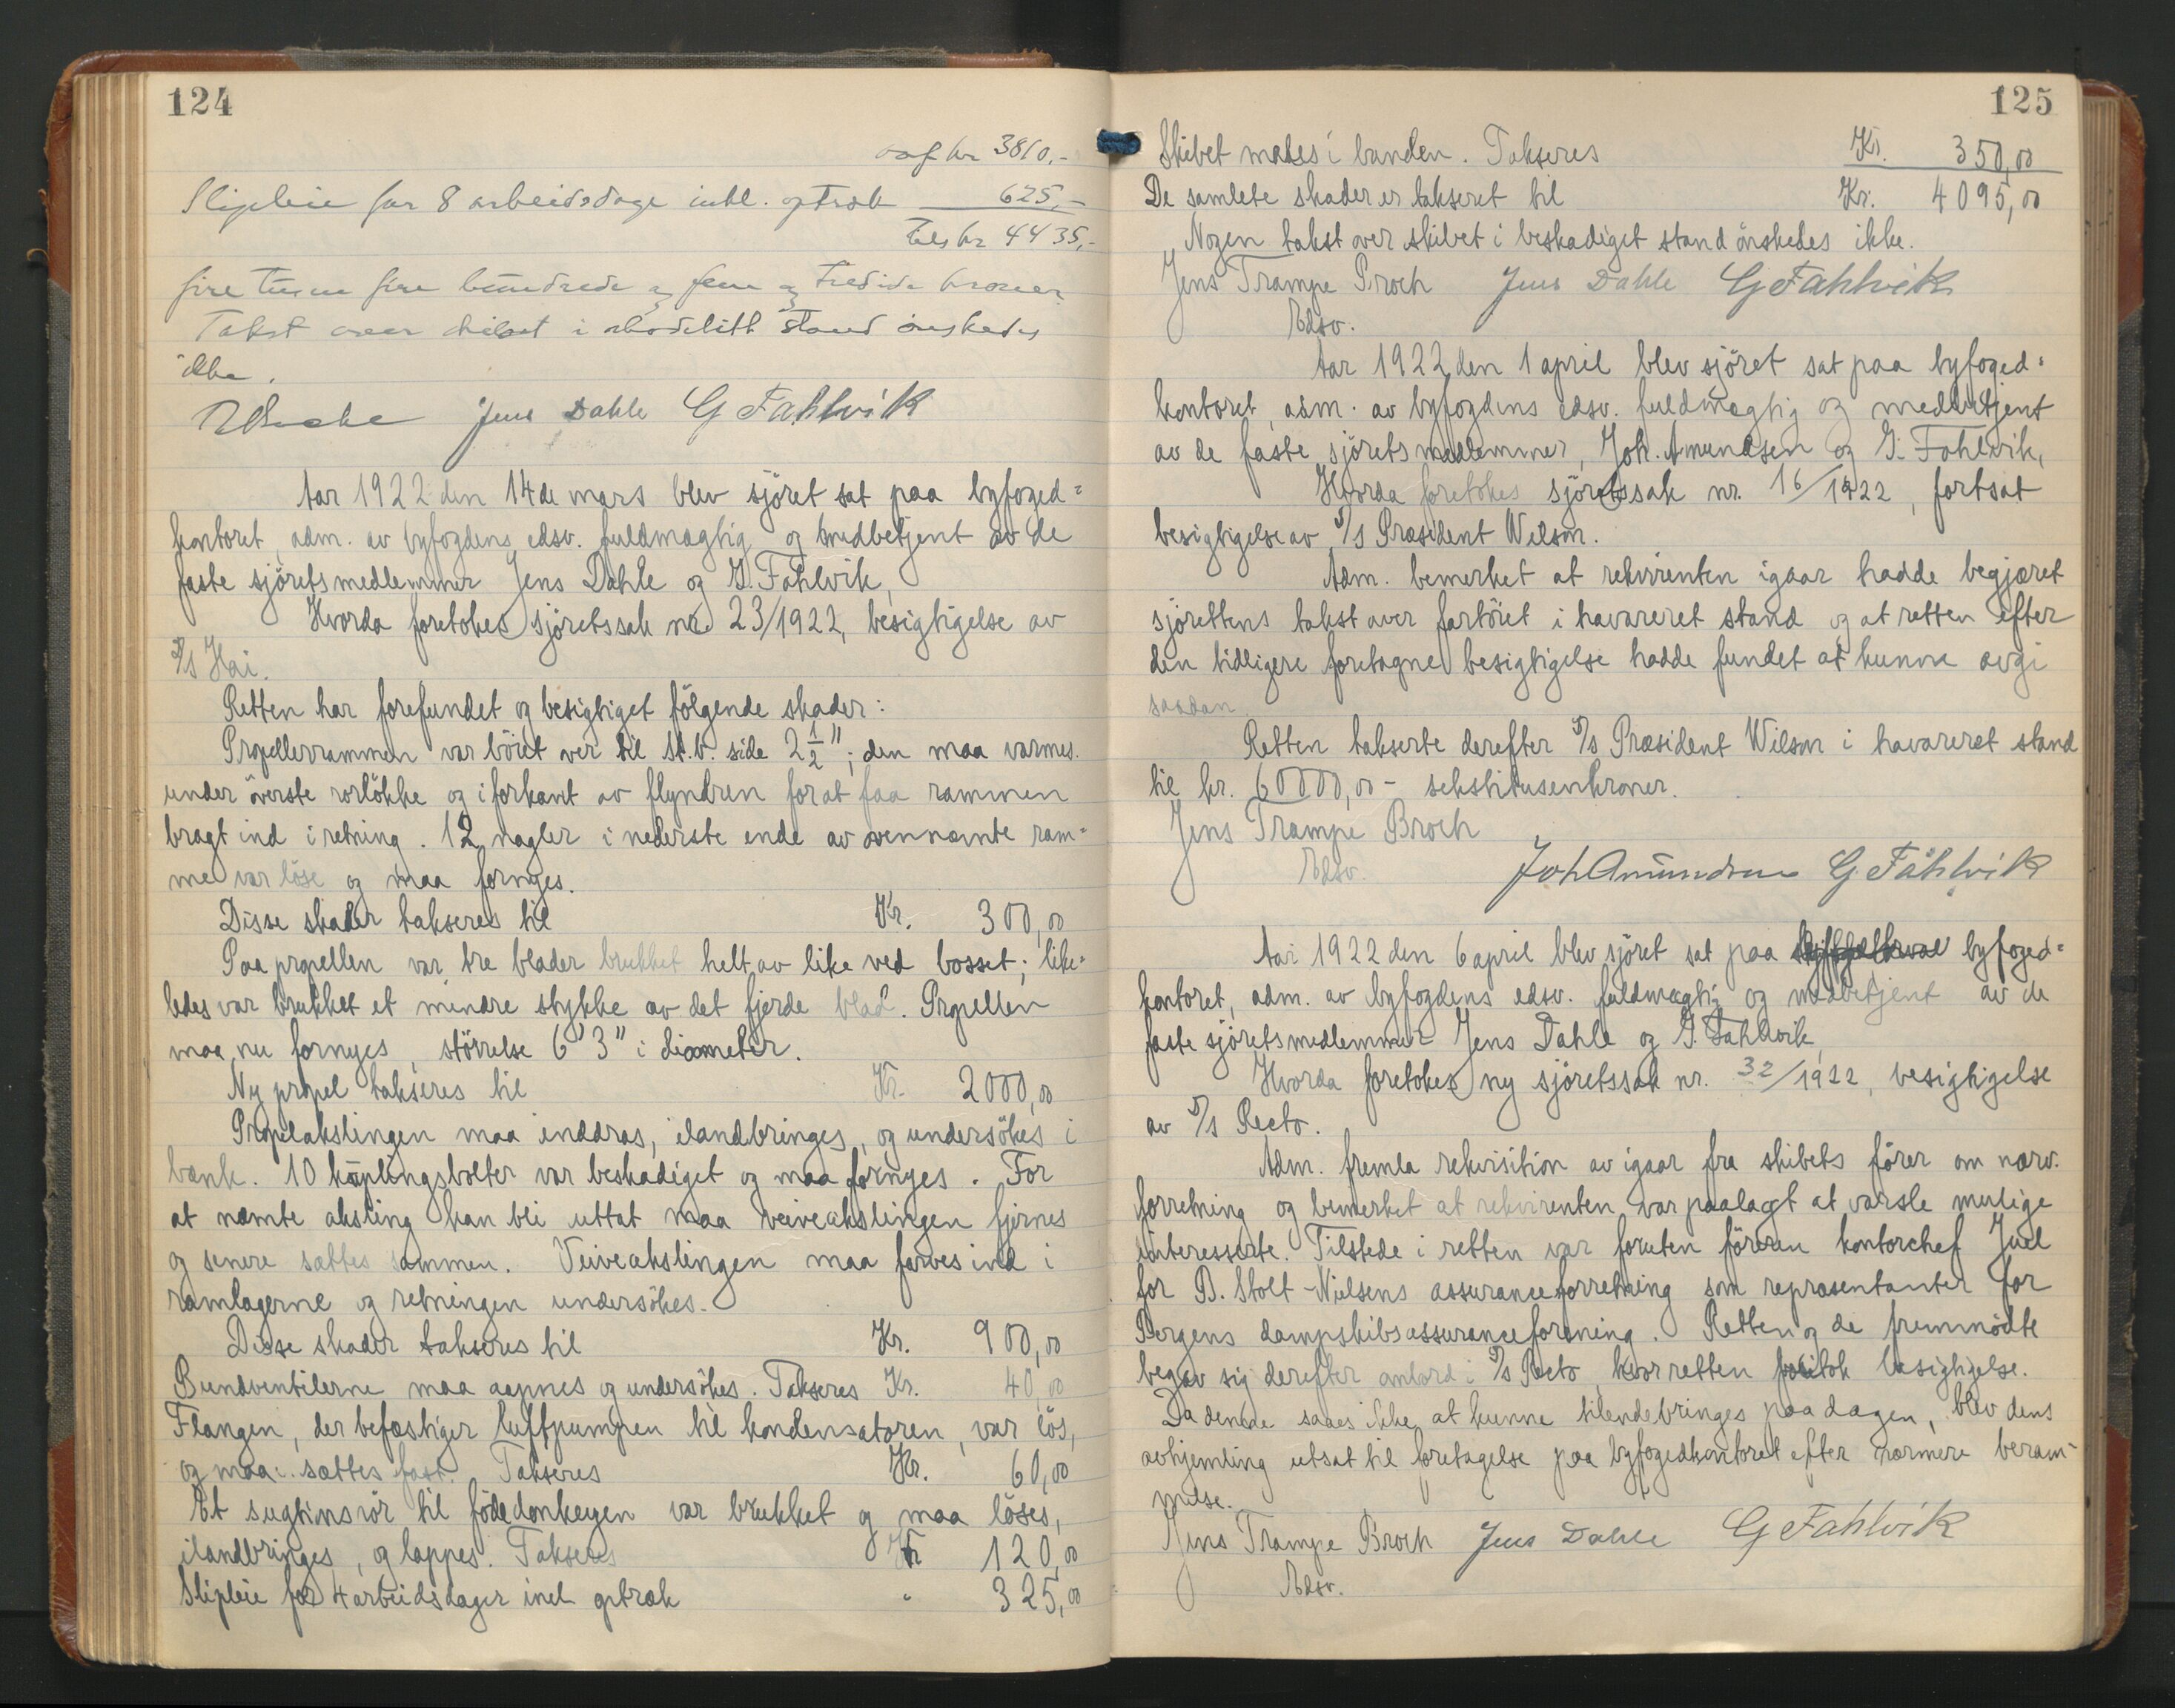 124
kr 3810,-
Slipleie for 8 arbeidsdage inkl. optræk 625,-
Tils kr 4435,-
fire tusen fire hundrede og fem og tredive kroner.
Takst over skibet i stand önskedes
ikke.
Jens Dahle G Fahlvik
Aar 1922 den 14de mars blev sjöret sat paa byfoged=
kontoret, adm. av byfogdens edsv. fuldmægtig og medbetjent av de
faste sjöretsmedlemmer Jens Dahle og G. Fahlvik,
Hvorda foretokes sjöretssak nr 23/1922, besigtigelse av
S/S Hai.
Retten har forefundet og besigtiget fölgende skader:
Propellerrammen var böiet over til st.b. side 2 1/2"; den maa varmes
under överste rorlökke og i forkant av flyndren for at faa rammen
bragt ind i retning. 12 nagler i nederste ende av ovennævnte ram=
me var löse og maa fornyes.
Disse skader takseres til Kr. 300,00
Paa propellen var tre blader brukket helt av like ved bosset; like=
ledes var brukket et mindre stykke av det fjerde blad. Propellen
maa nu fornyes, störrelse 6' 3" i diameter.
Ny propel takseres til Kr. 2000,00
Propelakslingen maa inddras, ilandbringes, og undersökes i
bænk. 10 koplingsbolter var beskadiget og maa fornyes. For
at nævnte aksling kan bli uttat maa veiveakslingen fjernes
og senere sættes sammen. Veiveakslingen maa farves ind i
ramlagerne og retningen undersökes.
Disse skader takseres til Kr. 900,00
Bundventilerne maa aapnes og undersökes. Takseres Kr. 40,00
Flangen, der befæstiger luftpumpen til kondensatoren, var lös,
og maa sættes fast. Takseres Kr. 60,00
Et sugtinsrör til födedonkeyen var brukket og maa löses,
ilandbringes, og lappes. Takseres Kr 120,00
Slipleie for 4 arbeidsdager incl optræk " 325,00
125
Skibet males i bunden. Takseres Kr. 350,00
De samlete skader er takseret til Kr. 4095,00
Nogen takst over skibet i beskadiget stand önskedes ikke.
Jens Trampe Broch Jens Dahle G Fahlvik
Edsv.
Aar 1922 den 1 april blev sjöret sat paa byfoged=
kontoret, adm. av byfogdens edsv. fuldmægtig og medbetjent
av de faste sjöretsmedlemmer, Joh. Amundsen og G. Fahlvik,
Hvorda foretokes sjöretssak nr. 16/1922, fortsat
besigtigelse av S/S Præsident Wilson.
Adm. bemerket at rekvirenten igaar hadde begjæret
sjörettens takst over fartöiet i havareret stand og at retten efter
den tidligere foretagne besigtigelse hadde fundet at kunne avgi
saadan.
Retten takserte derefter S/S Præsident Wilson i havareret stand
til kr. 60000,00 - sekstitusenkroner.
Jens Trampe Broch
Edsv. Joh Amundsen G Fahlvik
Aar 1922 den 6 april blev sjöret sat paa byfoged=
kontoret, adm. av byfogdens edsv. fuldmægtig og medbetjent av de
faste sjöretsmedlemmer Jens Dahle og G. Fahlvik,
Hvorda foretokes ny sjöretssak nr. 32/1922, besigtigelse
av S/S Recto.
Adm. fremla rekvisition av igaar fra skibets förer om nærv.
forretning og bemerket at rekvirenten var paalagt at varsle mulige
interesserte. Tilstede i retten var foruten föreren kontorchef Juel
for B. Stolt-Nielsens assuranceforretning som repræsentanter for
Bergens dampskibsassuranceforening. Retten og de fremmödte
begav sig derefter ombord i S/S Recto, hvor retten foretok besigtigelse.
Da denne saaes ikke at kunne tilendebringes paa dagen, blev dens
avhjemling utsat til foretagelse paa byfogedkontoret efter nærmere beram-
melse.
Jens Trampe Broch Jens Dahle G Fahlvik
Edsv.